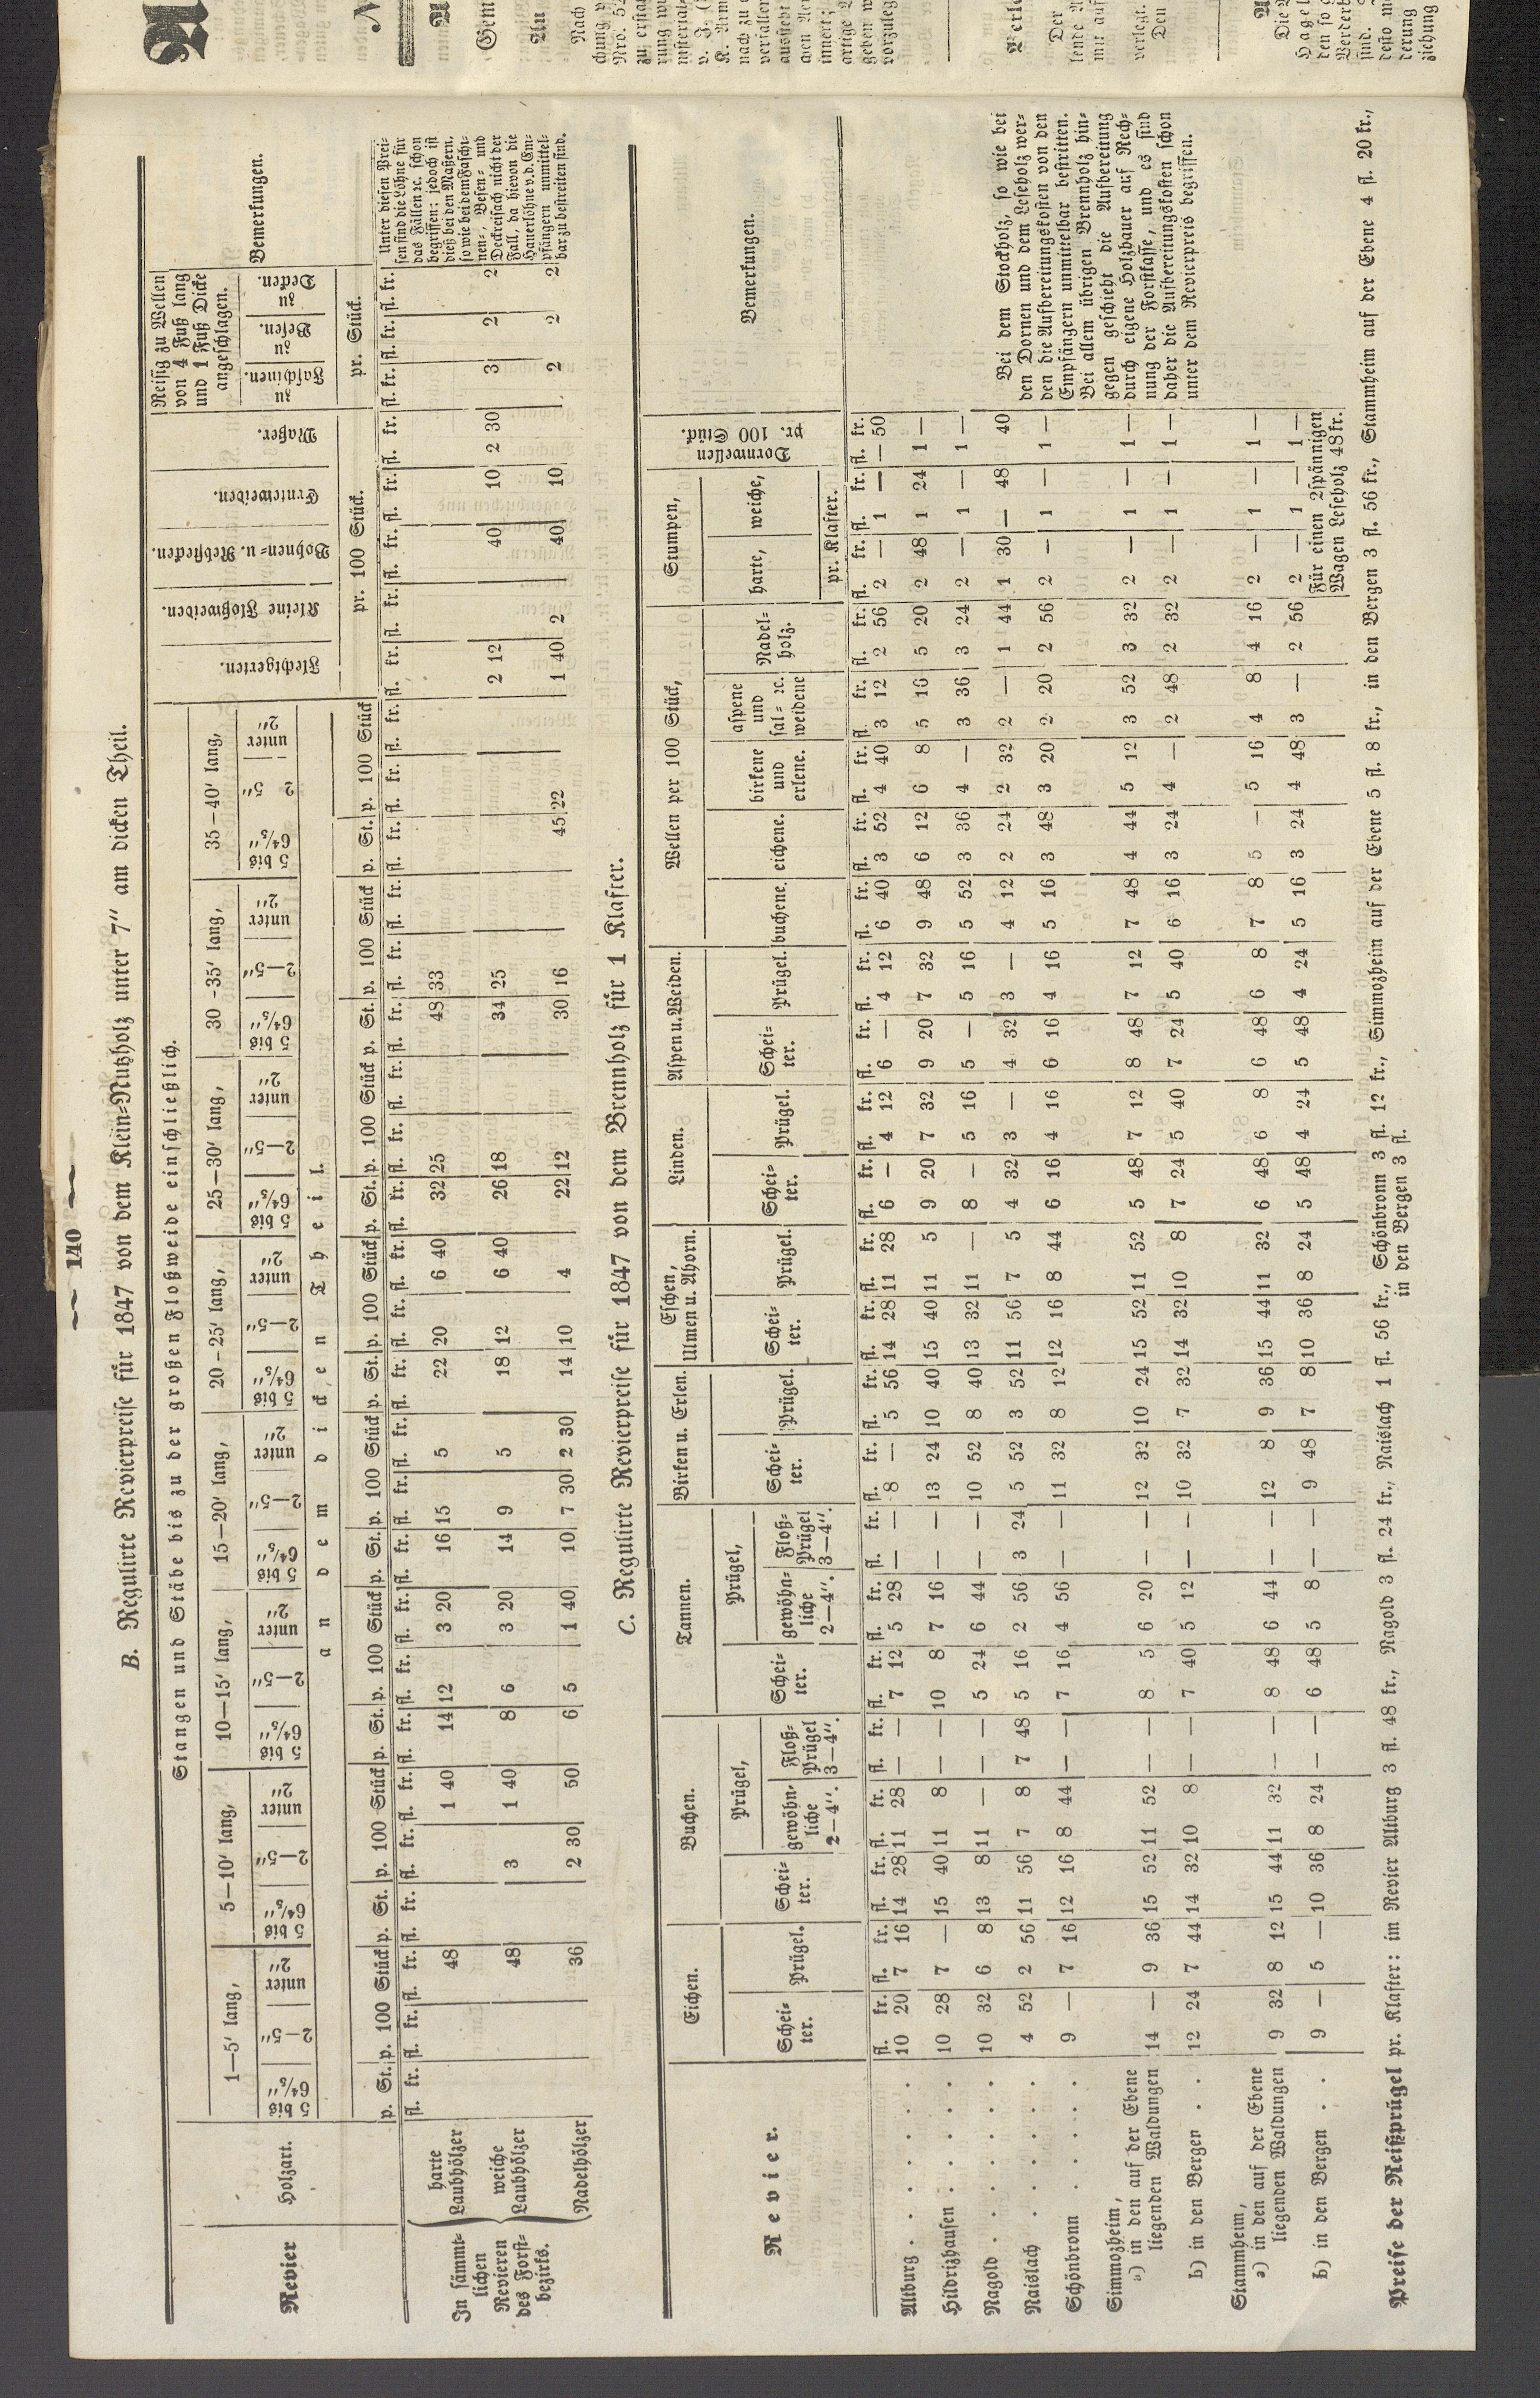 — 140 —
B. Regulirte Revierpreise für 1847 von dem Klein=Nutzholz unter 7" am dicken Theil.
Revier
Holzart.
Stangen und Stäbe bis zu der großen Floßweide einschließlich.
1—5' lang, 5—10' lang, 10—15' lang, 15—20' lang, 20—25' lang, 25—30' lang, 30-35' lang, 35—40' lang,
5 bis 6⁴/₅" 2—5" unter 2" 5 bis 6⁴/₅" 2—5" unter 2" 5 bis 6⁴/₅" 2—5" unter 2" 5 bis 6⁴/₅" 2—5" unter 2" 5 bis 6⁴/₅" 2—5" unter 2" 5 bis 6⁴/₅" 2—5" unter 2" 5 bis 6⁴/₅" 2—5" unter 2" 5 bis 6⁴/₅" 2 5" unter 2"
an dem dicken Theil.
p. St. p. 100 Stück p. St. p. 100 Stück p. St. p. 100 Stück p. St. p. 100 Stück p. St. p. 100 Stück p. St. p. 100 Stück p. St. p. 100 Stück p. St. p. 100 Stück
Flechtgerten. Kleine Floßweiden. Bohnen= u. Rebstecken. Erntewieden. Maßer.
pr. 100 Stück.
Reisig zu Wellen
von 4 Fuß lang
und 1 Fuß Dicke
angeschlagen.
zu Faschinen. zu Besen. zu Decken.
pr. Stück.
Bemerkungen.
In sämmt=
lichen
Revieren
des Forst=
bezirks.
harte Laubhölzer 48 1 40 14 12 3 20 16 15 5 22 20 6 40 32 25 48 33
weiche Laubhölzer 48 3 1 40 8 6 3 20 14 9 5 18 12 6 40 26 18 34 25 2 12 40 10 2 30 3 2 2
Nadelhölzer 36 2 30 50 6 5 1 40 10 7 30 2 30 14 10 4 22 12 30 16 45 22 1 40 2 40 10 2 2 2
Unter diesen Prei=
sen sind die Löhne für
das Fällen ꝛc. schon
begriffen; jedoch ist
dieß bei den Maßern,
so wie bei dem Faschi=
nen=, Besen= und
Deckreisach nicht der
Fall, da hievon die
Hauerlöhne v. d. Em=
pfängern unmittel=
bar zu bestreiten sind.
C. Regulirte Revierpreise für 1847 von dem Brennholz für 1 Klafter.
Revier.
Eichen. Buchen. Tannen. Birken u. Erlen. Eschen, Ulmen u. Ahorn. Linden. Aspen u. Weiden. Wellen per 100 Stück, Stumpen, Dornwellen pr. 100 Stück. Bemerkungen.
Schei=ter. Prügel. Schei=ter. Prügel, gewöhn=liche 2—4". Floß=Prügel 3—4". Schei=ter. Prügel, gewöhn=liche 2—4". Floß=Prügel 3—4". Schei=ter. Prügel. Schei=ter. Prügel. Schei=ter. Prügel. Schei=ter. Prügel. buchene. eichene. birkene und erlene. aspene und sal= ꝛc. weidene Nadel=holz. harte, weiche, pr. Klafter.
fl. kr. fl. kr. fl. kr. fl. kr. fl. kr. fl. kr. fl. kr. fl. kr. fl. kr. fl. kr. fl. kr. fl. kr. fl. kr. fl. kr. fl. kr. fl. kr. fl. kr. fl. kr. fl. kr. fl. kr. fl. kr. fl. kr. fl. kr. fl. kr.
Altburg . . . . 10 20 7 16 14 28 11 28 — — 7 12 5 28 — — 8 — 5 56 14 28 11 28 6 — 4 12 6 — 4 12 6 40 3 52 4 40 3 12 2 56 2 — 1 — — 50
Hildrizhausen . . . 10 28 7 — 15 40 11 8 — — 10 8 7 16 — — 13 24 10 40 15 40 11 5 9 20 7 32 9 20 7 32 9 48 6 12 6 8 5 16 5 20 2 48 1 24 1 —
Nagold . . . . 10 32 6 8 13 8 11 — — — 5 24 6 44 — — 10 52 8 40 13 32 11 — 8 — 5 16 5 — 5 16 5 52 3 36 4 — 3 36 3 24 2 — 1 — 1 —
Naislach . . . . 4 52 2 56 11 56 7 8 7 48 5 16 2 56 3 24 5 52 3 52 11 56 7 5 4 32 3 — 4 32 3 — 4 12 2 24 2 32 2 — 1 44 1 30 — 48 40
Schönbronn . . . . 9 — 7 16 12 16 8 44 — — 7 16 4 56 — — 11 32 8 12 12 16 8 44 6 16 4 16 6 16 4 16 5 16 3 48 3 20 2 20 2 56 2 — 1 — 1 —
Simmozheim,
a) in den auf der Ebene
liegenden Waldungen 14 — 9 36 15 52 11 52 — — 8 5 6 20 — — 12 32 10 24 15 52 11 52 5 48 7 12 8 48 7 12 7 48 4 44 5 12 3 52 3 32 2 — 1 — 1 —
b) in den Bergen . . 12 24 7 44 14 32 10 8 — — 7 40 5 12 — — 10 32 7 32 14 32 10 8 7 24 5 40 7 24 5 40 6 16 3 24 4 — 2 48 2 32 2 — 1 — 1 —
Stammheim,
a) in den auf der Ebene
liegenden Waldungen 9 32 8 12 15 44 11 32 — — 8 48 6 44 — — 12 8 9 36 15 44 11 32 6 48 6 8 6 48 6 8 7 8 5 — 5 16 4 8 4 16 2 — 1 — 1 —
b) in den Bergen . . 9 — 5 — 10 36 8 24 — — 6 48 5 8 — — 9 48 7 8 10 36 8 24 5 48 4 24 5 48 4 24 5 16 3 24 4 48 3 — 2 56 2 — 1 — 1 —
Für einen 2spännigen
Wagen Leseholz 48 kr.
Bei dem Stockholz, so wie bei
den Dornen und dem Leseholz wer=
den die Aufbereitungskosten von den
Empfängern unmittelbar bestritten.
Bei allem übrigen Brennholz hin=
gegen geschieht die Aufbereitung
durch eigene Holzhauer auf Rech=
nung der Forstkasse, und es sind
daher die Aufbereitungskosten schon
unter dem Revierpreis begriffen.
Preise der Reißprügel pr. Klafter: im Revier Altburg 3 fl. 48 kr., Nagold 3 fl. 24 kr., Naislach 1 fl. 56 kr., Schönbronn 3 fl. 12 kr., Simmozheim auf der Ebene 5 fl. 8 kr., in den Bergen 3 fl. 56 kr., Stammheim auf der Ebene 4 fl. 20 kr.,
in den Bergen 3 fl.